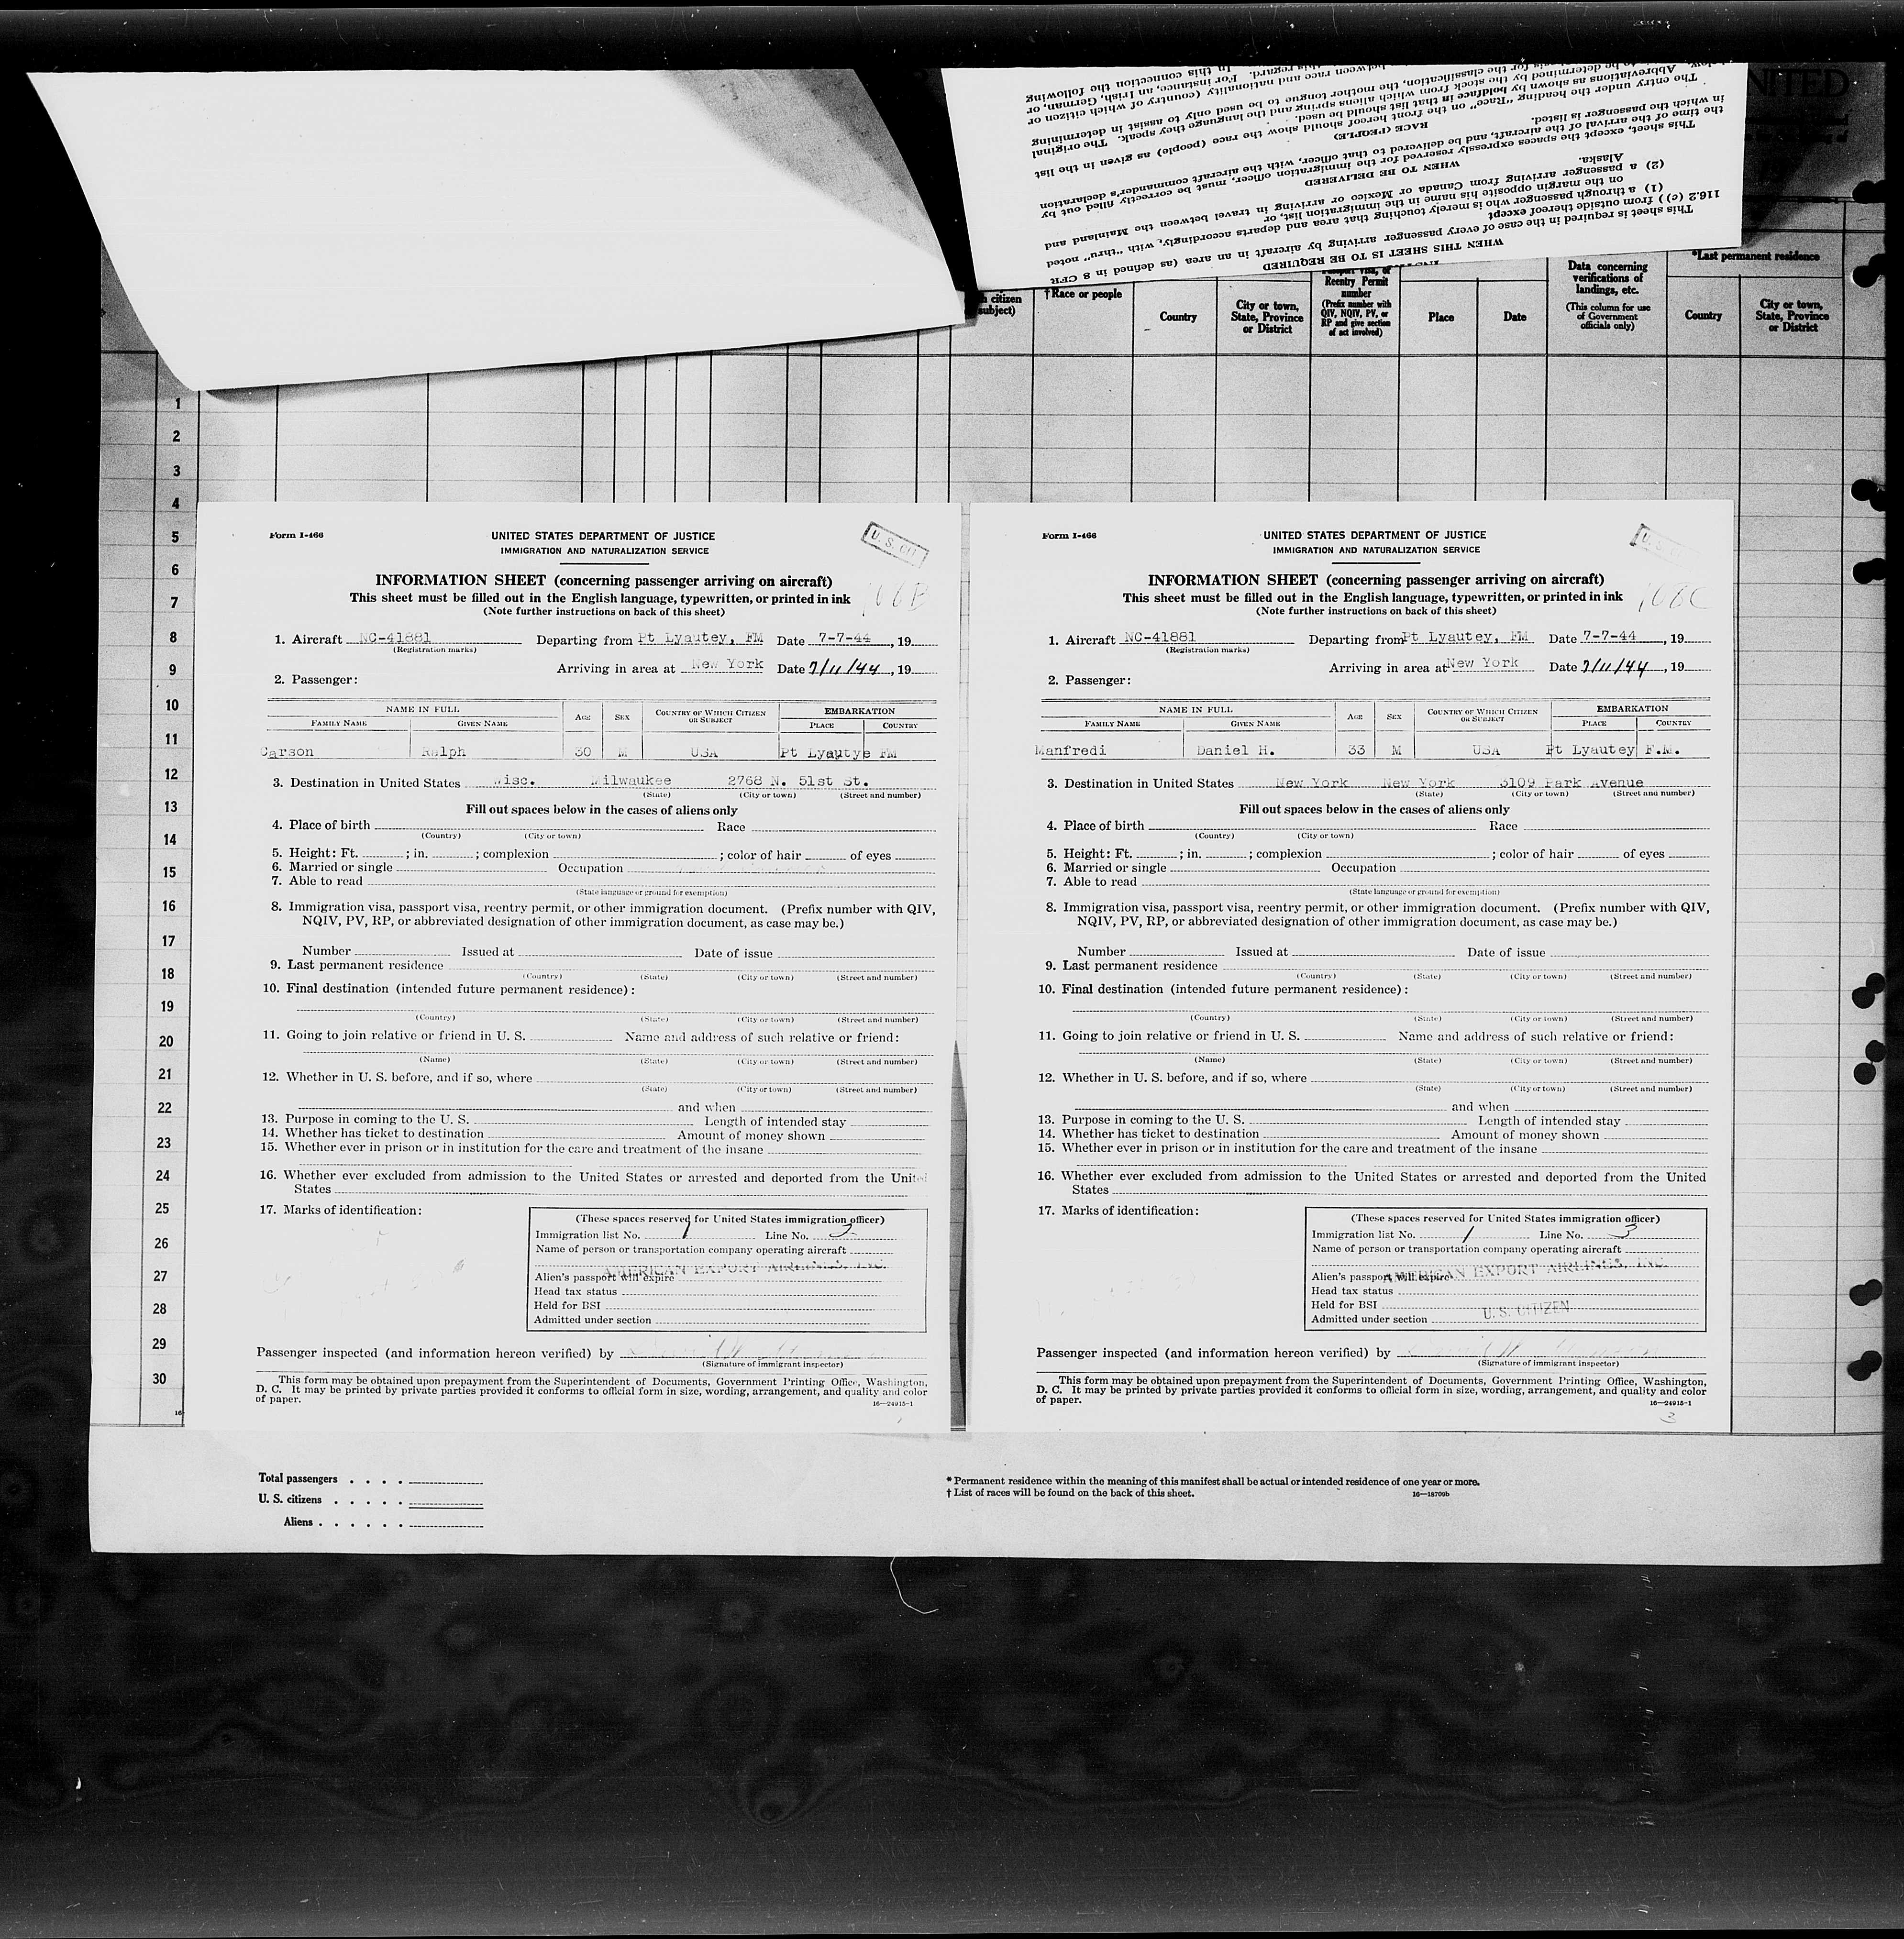 UNITED
WHEN THIS SHEET IS TO BE REQUIRED
This sheet is required in the case of every passenger arriving by aircraft in an area (as defined in 8 CFR
116.2 (c)) from outside thereof except
(1) a through passenger who is merely touching that area and departs accordingly, with "thru" noted
on the margin opposite his name in the immigration list, or
(2) a passenger arriving from Canada or Mexico or arriving in travel between the Mainland and
Alaska.
WHEN TO BE DELIVERED
This sheet, except the spaces expressly reserved for the immigration officer, must be correctly filled out by
the time of the arrival of the aircraft, and be delivered to that officer, with the aircraft commander's declaration
in which the passenger is listed.
RACE (PEOPLE)
The entry under the heading "Race" on the front hereof should show the race (people) as given in the list
Abbreviations as shown by boldface in that list should be used. The original
stock from which aliens spring and the language they speak
to be determined by the
for the classification, the mother tongue to be used only to assist in determining
between race and nationality (country of which citizen or
this regard. For instance, an Irish, German, or
In this connection the following
citizen
subject)
†Race or people
Country
City or town, State, Province or District
Reentry Permit number
(Prefix number with QIV, NQIV, PV, or RP and give section of act involved)
Place
Date
Data concerning verifications of landings, etc.
(This column for use of Government officials only)
*Last permanent residence
Country
City or town, State, Province or District
1
2
3
4
5
6
7
8
9
10
11
12
13
14
15
16
17
18
19
20
21
22
23
24
25
26
27
28
29
30
16
Form I-466
UNITED STATES DEPARTMENT OF JUSTICE
IMMIGRATION AND NATURALIZATION SERVICE
U. S. CIT
INFORMATION SHEET (concerning passenger arriving on aircraft)
This sheet must be filled out in the English language, typewritten, or printed in ink
(Note further instructions on back of this sheet)
106B
1. Aircraft NC-41881 Departing from Pt Lyautey, FM Date 7-7-44, 19
(Registration marks)
Arriving in area at New York Date 7/11/44, 19
2. Passenger:
NAME IN FULL AGE SEX COUNTRY OF WHICH CITIZEN OR SUBJECT EMBARKATION
FAMILY NAME GIVEN NAME PLACE COUNTRY
Carson Ralph 30 M USA Pt Lyautye FM
3. Destination in United States Wisc. Milwaukee 2768 N. 51st St.
(State) (City or town) (Street and number)
Fill out spaces below in the cases of aliens only
4. Place of birth Race
(Country) (City or town)
5. Height: Ft. ; in. ; complexion ; color of hair of eyes
6. Married or single Occupation
7. Able to read
(State language or ground for exemption)
8. Immigration visa, passport visa, reentry permit, or other immigration document. (Prefix number with QIV,
NQIV, PV, RP, or abbreviated designation of other immigration document, as case may be.)
Number Issued at Date of issue
9. Last permanent residence
(Country) (State) (City or town) (Street and number)
10. Final destination (intended future permanent residence):
(Country) (State) (City or town) (Street and number)
11. Going to join relative or friend in U. S. Name and address of such relative or friend:
(Name) (State) (City or town) (Street and number)
12. Whether in U. S. before, and if so, where
(State) (City or town) (Street and number)
and when
13. Purpose in coming to the U. S. Length of intended stay
14. Whether has ticket to destination Amount of money shown
15. Whether ever in prison or in institution for the care and treatment of the insane
16. Whether ever excluded from admission to the United States or arrested and deported from the United
States
17. Marks of identification:
(These spaces reserved for United States immigration officer)
Immigration list No. 1 Line No. 2
Name of person or transportation company operating aircraft
AMERICAN EXPORT AIRLINES, INC.
Alien's passport will expire
Head tax status
Held for BSI
Admitted under section
Passenger inspected (and information hereon verified) by
(Signature of immigrant inspector)
This form may be obtained upon prepayment from the Superintendent of Documents, Government Printing Office, Washington,
D. C. It may be printed by private parties provided it conforms to official form in size, wording, arrangement, and quality and color
of paper.
16—24915-1
Form I-466
UNITED STATES DEPARTMENT OF JUSTICE
IMMIGRATION AND NATURALIZATION SERVICE
INFORMATION SHEET (concerning passenger arriving on aircraft)
This sheet must be filled out in the English language, typewritten, or printed in ink
(Note further instructions on back of this sheet)
106C
1. Aircraft NC-41881 Departing from Pt Lyautey, FM Date 7-7-44, 19
(Registration marks)
Arriving in area at New York Date 7/11/44, 19
2. Passenger:
NAME IN FULL AGE SEX COUNTRY OF WHICH CITIZEN OR SUBJECT EMBARKATION
FAMILY NAME GIVEN NAME PLACE COUNTRY
Manfredi Daniel H. 33 M USA Pt Lyautey F.M.
3. Destination in United States New York New York 3109 Park Avenue
(State) (City or town) (Street and number)
Fill out spaces below in the cases of aliens only
4. Place of birth Race
(Country) (City or town)
5. Height: Ft. ; in. ; complexion ; color of hair of eyes
6. Married or single Occupation
7. Able to read
(State language or ground for exemption)
8. Immigration visa, passport visa, reentry permit, or other immigration document. (Prefix number with QIV,
NQIV, PV, RP, or abbreviated designation of other immigration document, as case may be.)
Number Issued at Date of issue
9. Last permanent residence
(Country) (State) (City or town) (Street and number)
10. Final destination (intended future permanent residence):
(Country) (State) (City or town) (Street and number)
11. Going to join relative or friend in U. S. Name and address of such relative or friend:
(Name) (State) (City or town) (Street and number)
12. Whether in U. S. before, and if so, where
(State) (City or town) (Street and number)
and when
13. Purpose in coming to the U. S. Length of intended stay
14. Whether has ticket to destination Amount of money shown
15. Whether ever in prison or in institution for the care and treatment of the insane
16. Whether ever excluded from admission to the United States or arrested and deported from the United
States
17. Marks of identification:
(These spaces reserved for United States immigration officer)
Immigration list No. 1 Line No. 3
Name of person or transportation company operating aircraft
AMERICAN EXPORT AIRLINES, INC.
Alien's passport will expire
Head tax status
Held for BSI
U. S. CITIZEN
Admitted under section
Passenger inspected (and information hereon verified) by
(Signature of immigrant inspector)
This form may be obtained upon prepayment from the Superintendent of Documents, Government Printing Office, Washington,
D. C. It may be printed by private parties provided it conforms to official form in size, wording, arrangement, and quality and color
of paper.
16—24915-1
3
Total passengers . . . .
U. S. citizens . . . . .
Aliens . . . . . .
* Permanent residence within the meaning of this manifest shall be actual or intended residence of one year or more.
† List of races will be found on the back of this sheet.
16—18709b